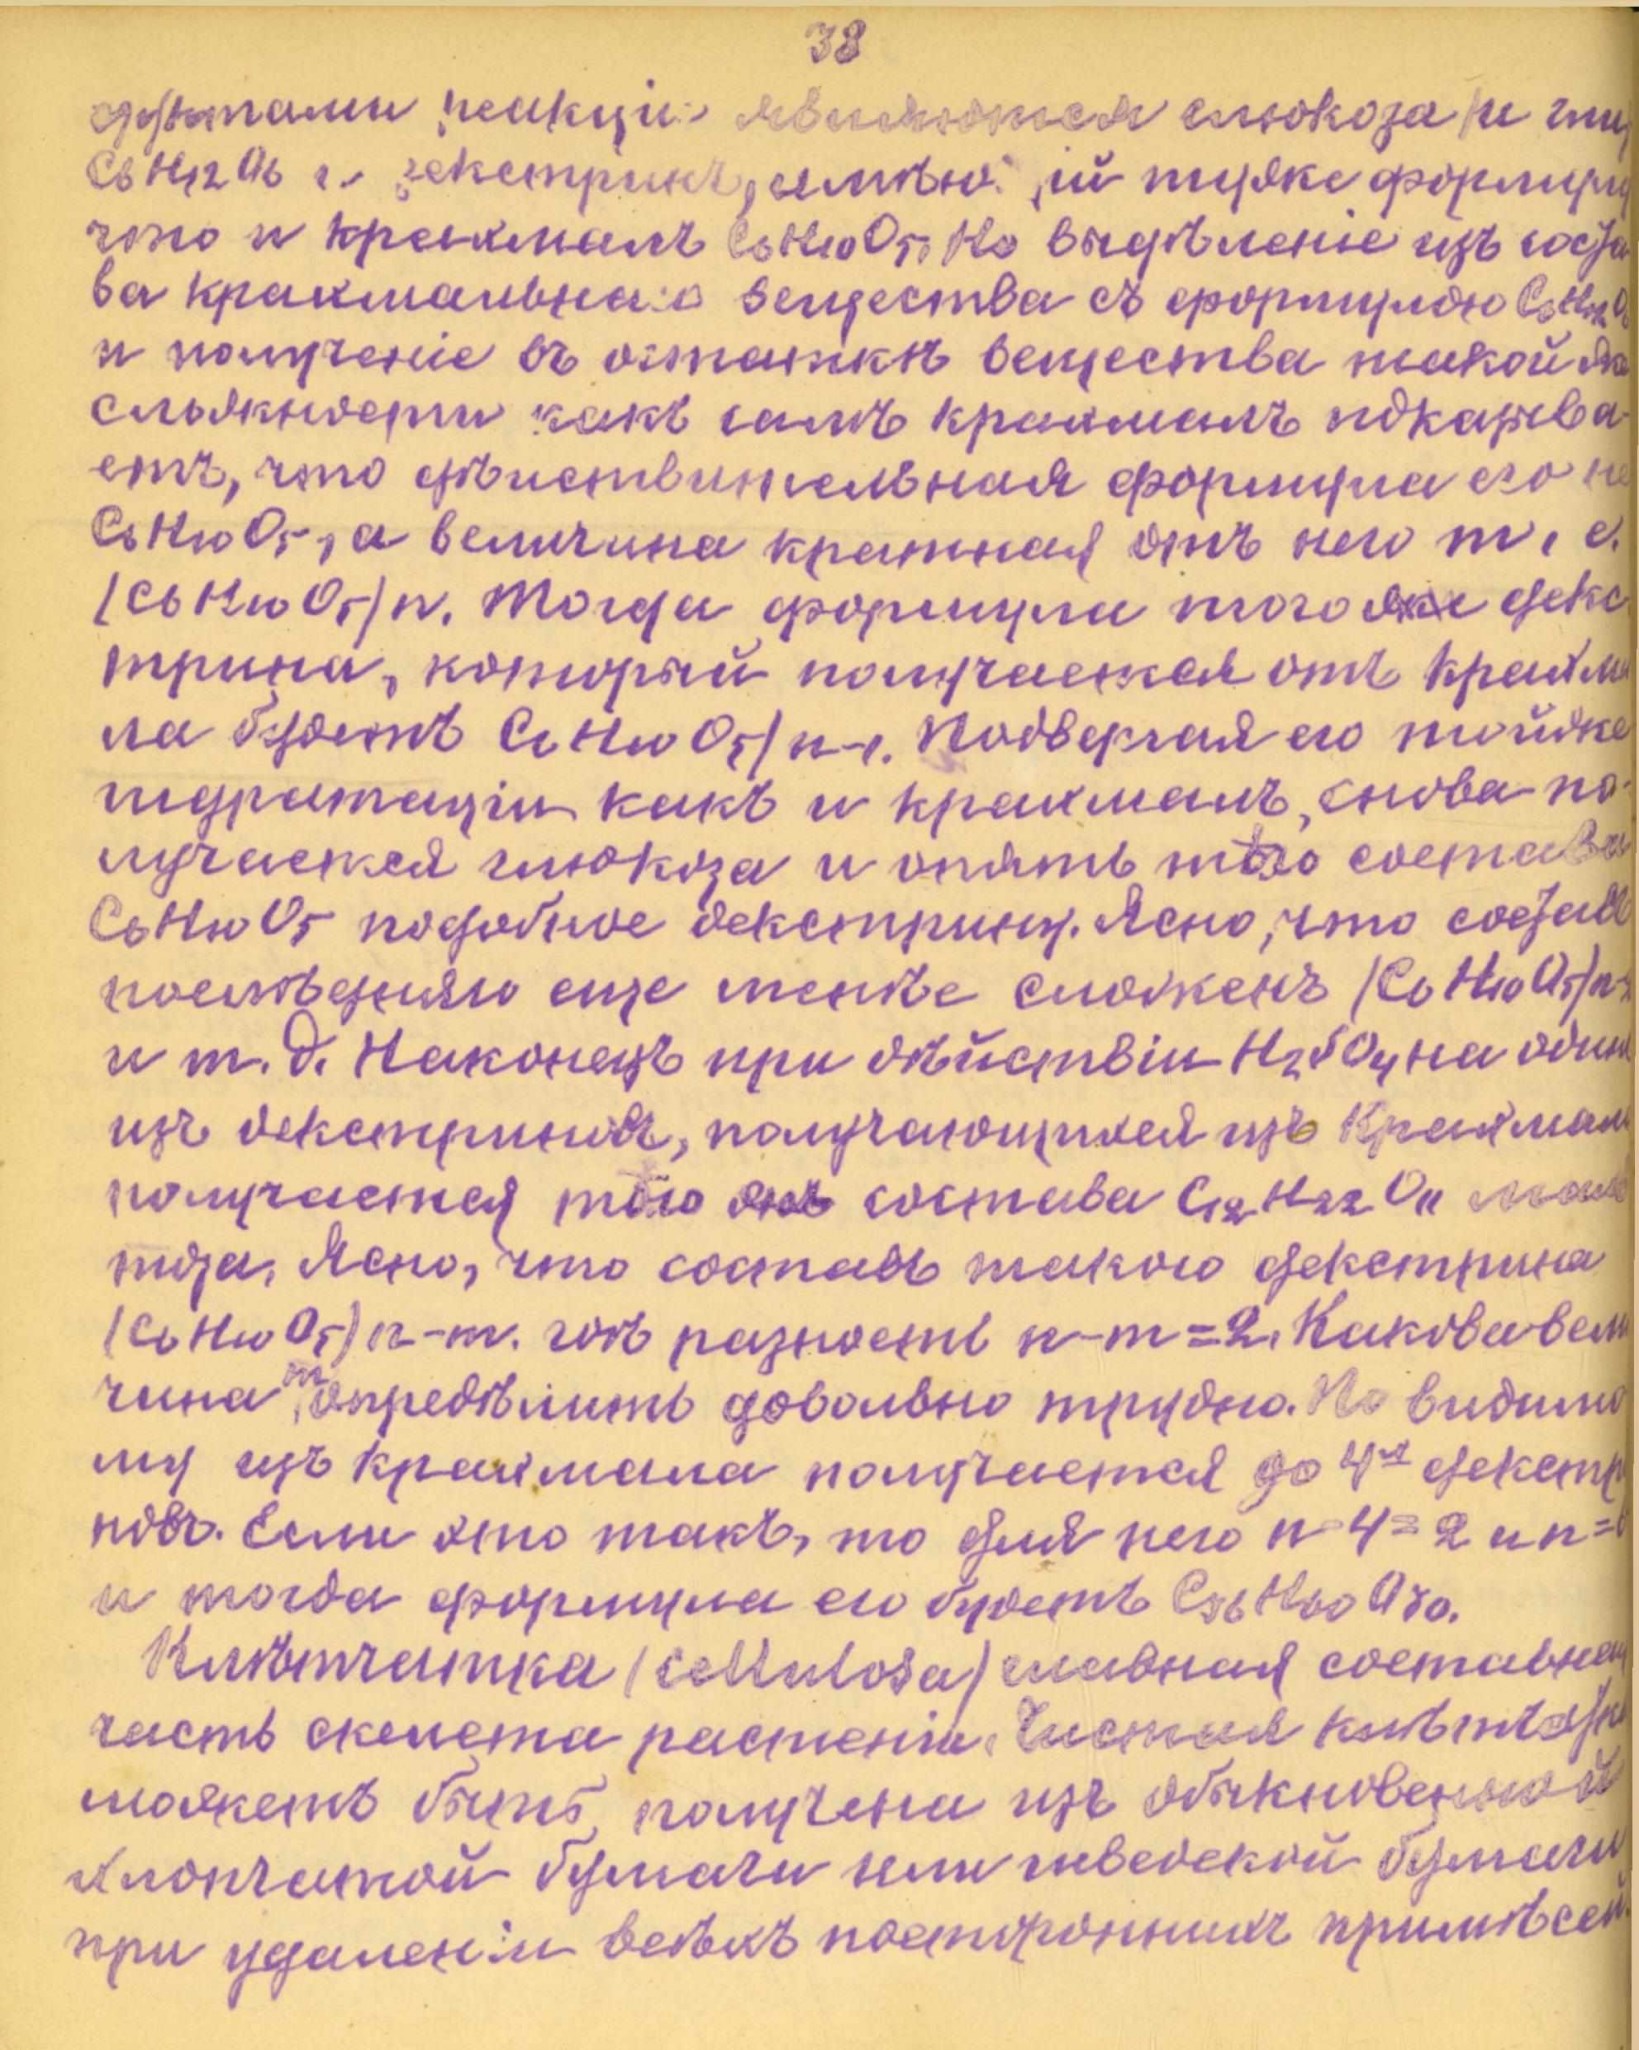 38
дуктами реакціи являются глюкоза и
C6H12O6 и декстринъ, имѣющій туже формулу
что и крахмалъ C6H10O5. Но выдѣленіе изъ соста
ва крахмальнаго вещества съ формулою C6H12O6
и полученіе въ остаткѣ вещества такой же
сложности какъ самъ крахмалъ показыва-
етъ, что дѣйствительная формула его не
C6H10O5, а величина кратная отъ него т. е.
(C6H10O5)n. Тогда формула того же декс
трина, который получается отъ крахма
ла будетъ C6H10O5)n-1. Подвергая его тойже
гидратаціи какъ и крахмалъ, снова по-
лучается глюкоза и опять тѣло состава
C6H10O5 подобное декстрину. Ясно, что составъ
послѣдняго еще менѣе сложенъ (C6H10O5)n-2
и т. д. Наконецъ при дѣйствіи H2SO4 на одинъ
изъ декстриновъ, получающихся изъ крахмала
получается тѣло состава C12H22O11 маль
тоза. Ясно, что составъ такого декстрина
(C6H10O5)n-m. гдѣ разность n-m=2. Какова вели
чина m, опредѣлить довольно трудно. По видимо
му изъ крахмала получается до 4х декстри
новъ. Если это такъ, то для него n-4=2 и n=6
и тогда формула его будетъ C36H60O30.
Клѣтчатка (cellulosa) главная составная
часть скелета растеній. Чистая клѣтчатка
можетъ быть получена изъ обыкновенной
хлопчатой бумаги или шведской бумаги
при удаленіи всѣхъ постороннихъ примѣсей.